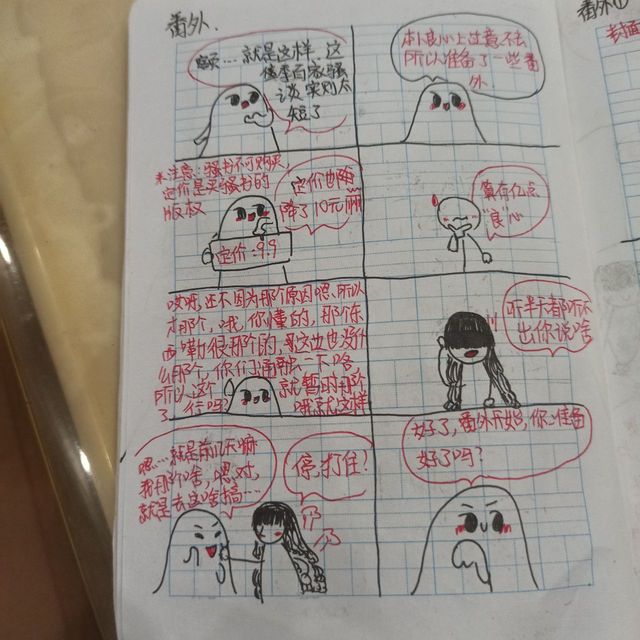 番外.
就是这样,这
短了
本人良心上过意不去
所以准备了一些番
外.
*注意:骚书不可购买,
定价是买骚书的
版权
定价也
降了10元嘛
定价:9.9
真有亿点
"良"心
哎呀,还不因为那个原因嗯,所以
才那个,哦,你懂的,那个东
西嘞很那个的,
么那个,你们
所以这个
就暂时那个
了,行吗?
哦就这样
听半天都听不
出你说啥
嗯……就是前几天嘛
我那个啥,嗯,对,
就是去这啥搞……
停,打住!
好了,番外开始,你准备
好了吗?
番外①
封面